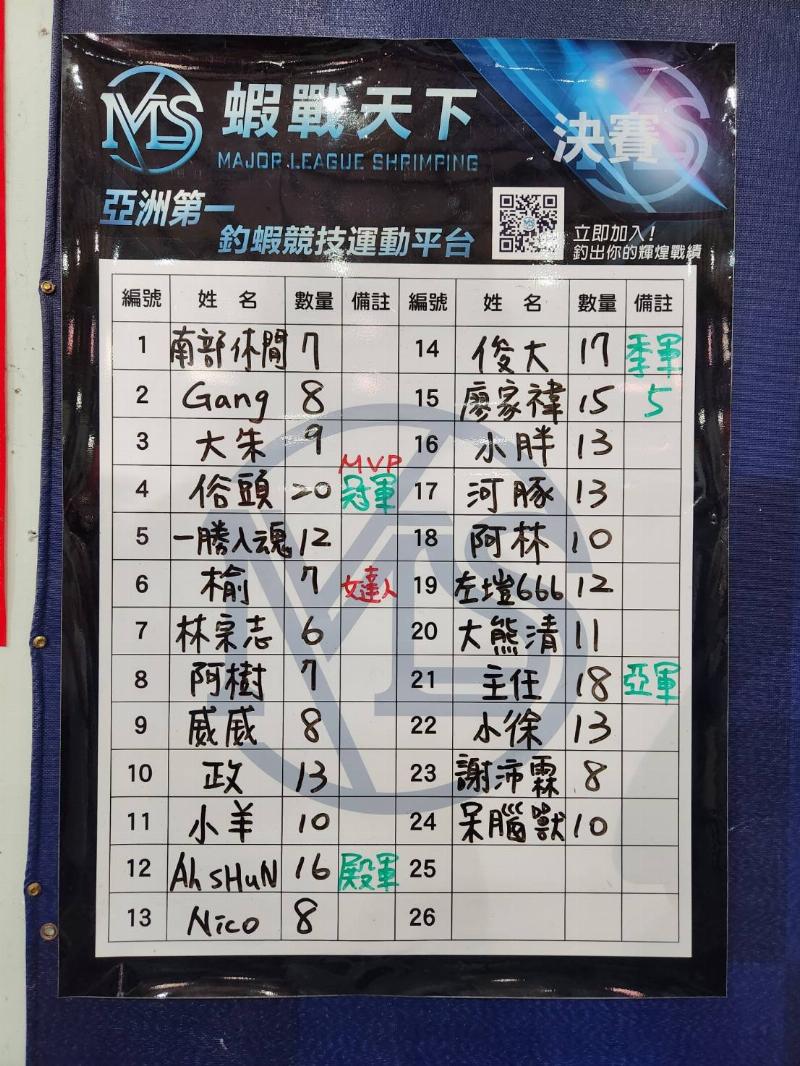 MLS 蝦戰天下
MAJOR LEAGUE SHRIMPING
決賽
亞洲第一
釣蝦競技運動平台
立即加入!
釣出你的輝煌戰績
編號 姓名 數量 備註 編號 姓名 數量 備註
1 南部休閒 7 14 俊大 17 季軍
2 Gang 8 15 廖家禕 15 5
3 大朱 9 16 小胖 13
4 俗頭 20 MVP 冠軍 17 河豚 13
5 一勝入魂 12 18 阿林 10
6 榆 7 女達人 19 左塏666 12
7 林宗志 6 20 大熊清 11
8 阿樹 7 21 主任 18 亞軍
9 威威 8 22 小徐 13
10 政 13 23 謝沛霖 8
11 小羊 10 24 呆腦獸 10
12 Ah sHuN 16 殿軍 25
13 Nico 8 26